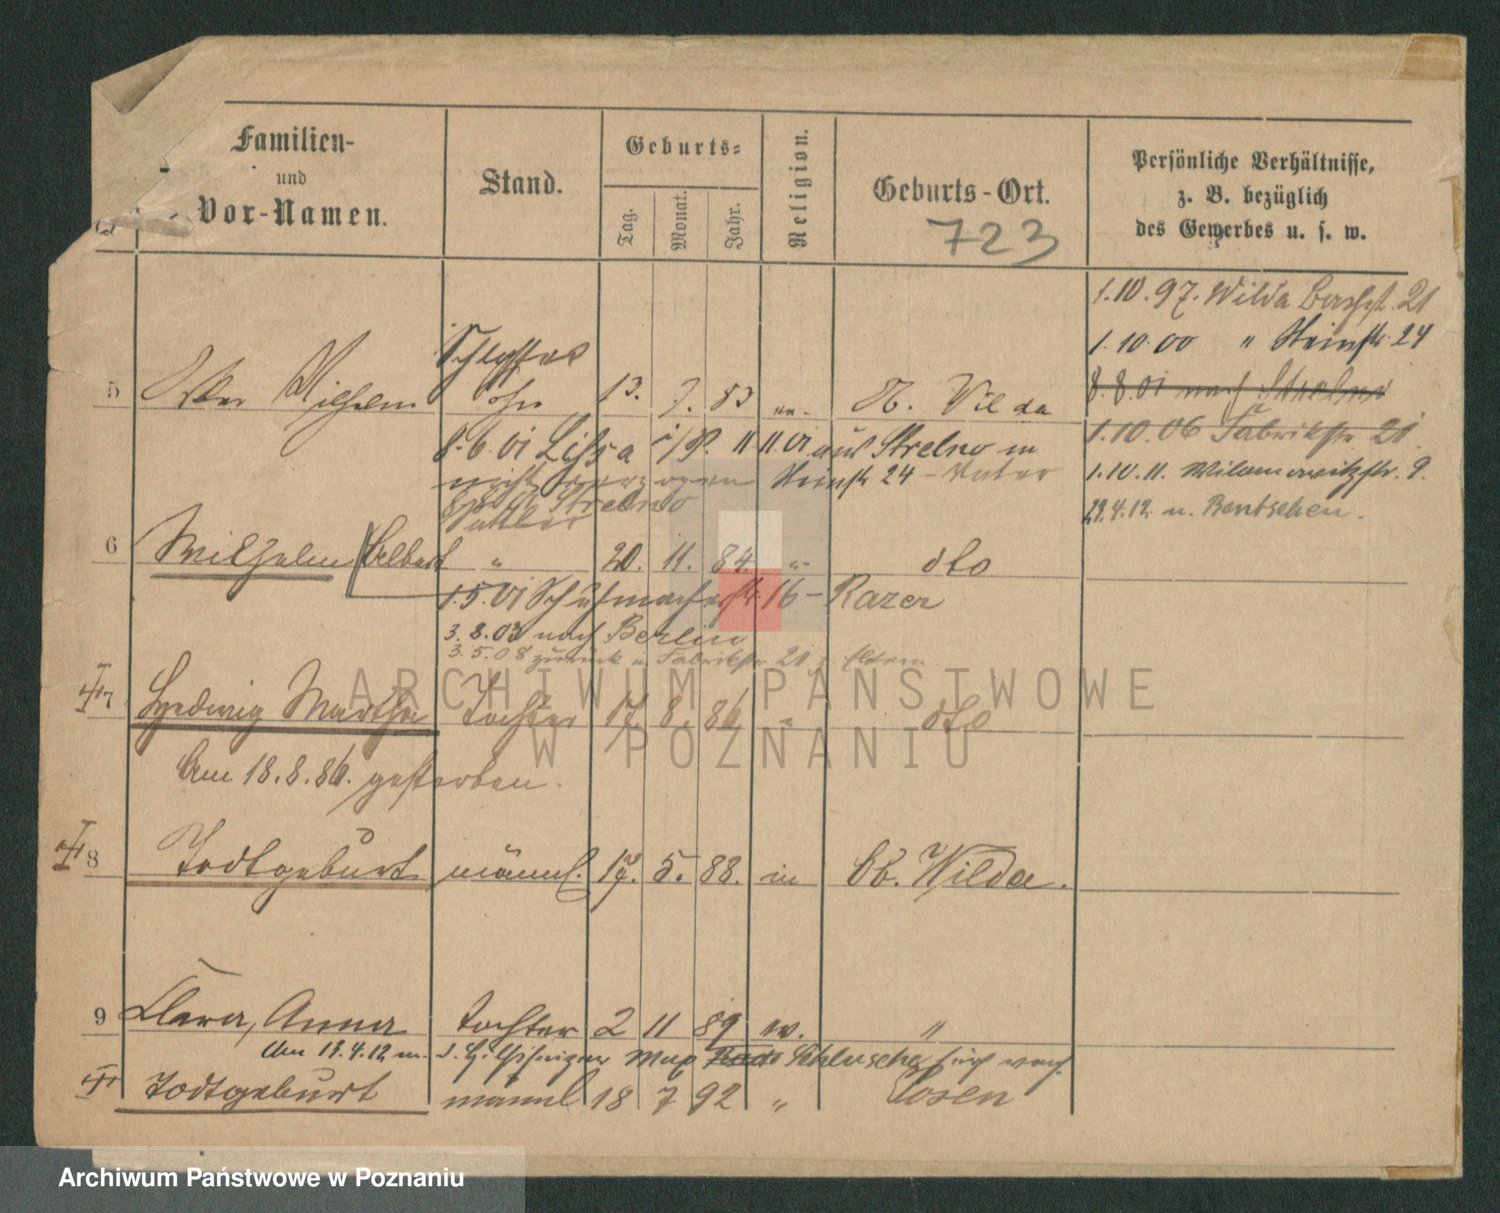 Familien-
und
Vor-Namen.
Stand.
Geburts-
Tag.
Monat.
Jahr.
Religion.
Geburts-Ort.
723
Persönliche Verhältnisse,
z. B. bezüglich
des Gewerbes u. s. w.
1.10.97. Wilda 21
1.10.00 " 24
8.8.01 nach Strelno
1.10.06 Fabrikstr 21.
1.10.11. Wilamowitzstr. 9.
29.4.12 n. Bentschen.
5 Wilhelm 13. 7. 83 ev. O. Wilda
8.6.01 Lissa i/P. 11 11.01 aus Strelno in
nicht verzogen 24 - Vater
Strelno
6 Wilhelm Albert " 20. 11. 84. " dto
1.5.01 Schuhmacherstr. 16 -
3.8.03 nach Berlin
3.5.08 zurück n Fabrikstr 21 z. Eltern.
7 Hedwig Martha Tochter 17. 8. 86 " dto
Am 18.8.86. gestorben.
8 Todtgeburt männl. 17. 5. 88. Ob. Wilda.
9 Clara, Anna Tochter 2 11 89 ev. "
Am 13.4.12 m. d. Max
Todtgeburt männl 18 7 92 " Posen
ARCHIWUM PAŃSTWOWE
W POZNANIU
Archiwum Państwowe w Poznaniu